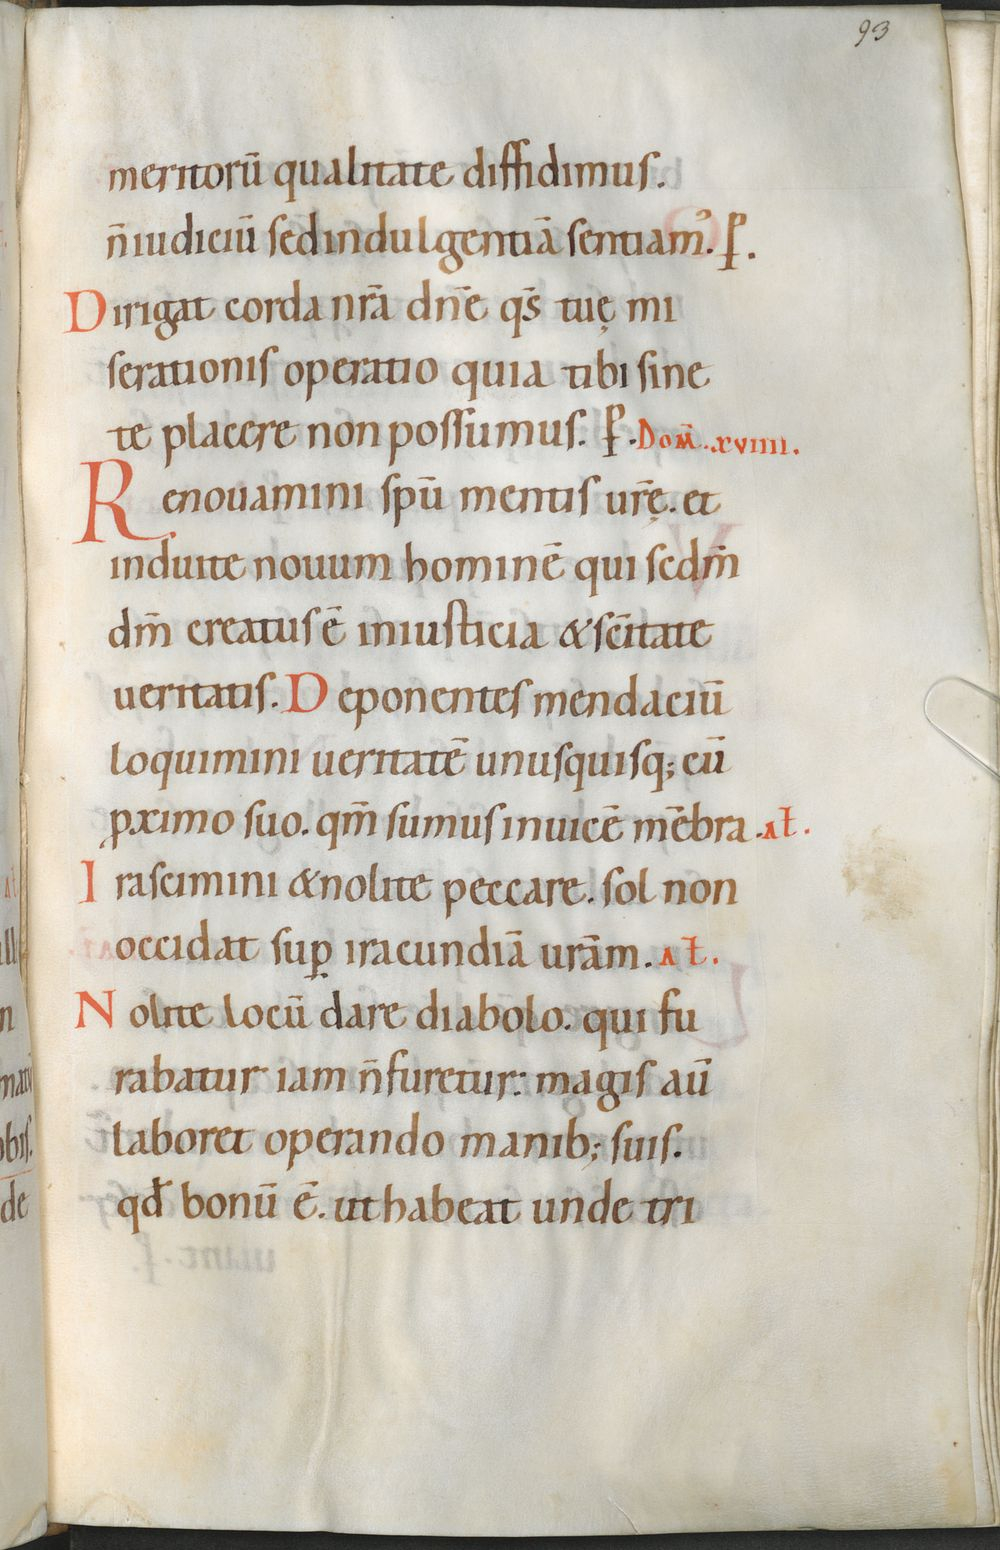 93
meritorū qualitate diffidimus.
n̄ iudiciū sed indulgentiā sentiam᾽. ꝑ.
Dirigat corda nr̄a dn̄e qs̄ tuę mi
serationis operatio quia tibi sine
te placere non possumus. ꝑ. Dom̄. xviiii.
Renouamini sp̄ū mentis ur̄ę. et
induite nouum hominē qui sedm̄
dm̄ creatus ē in iusticia & sc̄itate
ueritatis. Deponentes mendaciū
loquimini ueritatē unusquisq; cū
ꝓximo suo. qm̄ sumus inuicē mēbra. aƚ.
Irascimini & nolite peccare. sol non
occidat suꝑ iracundiā urām. aƚ.
Nolite locū dare diabolo. qui fu
rabatur iam n̄ furetur: magis aū
laboret operando manib; suis.
qđ bonū ē. ut habeat unde tri